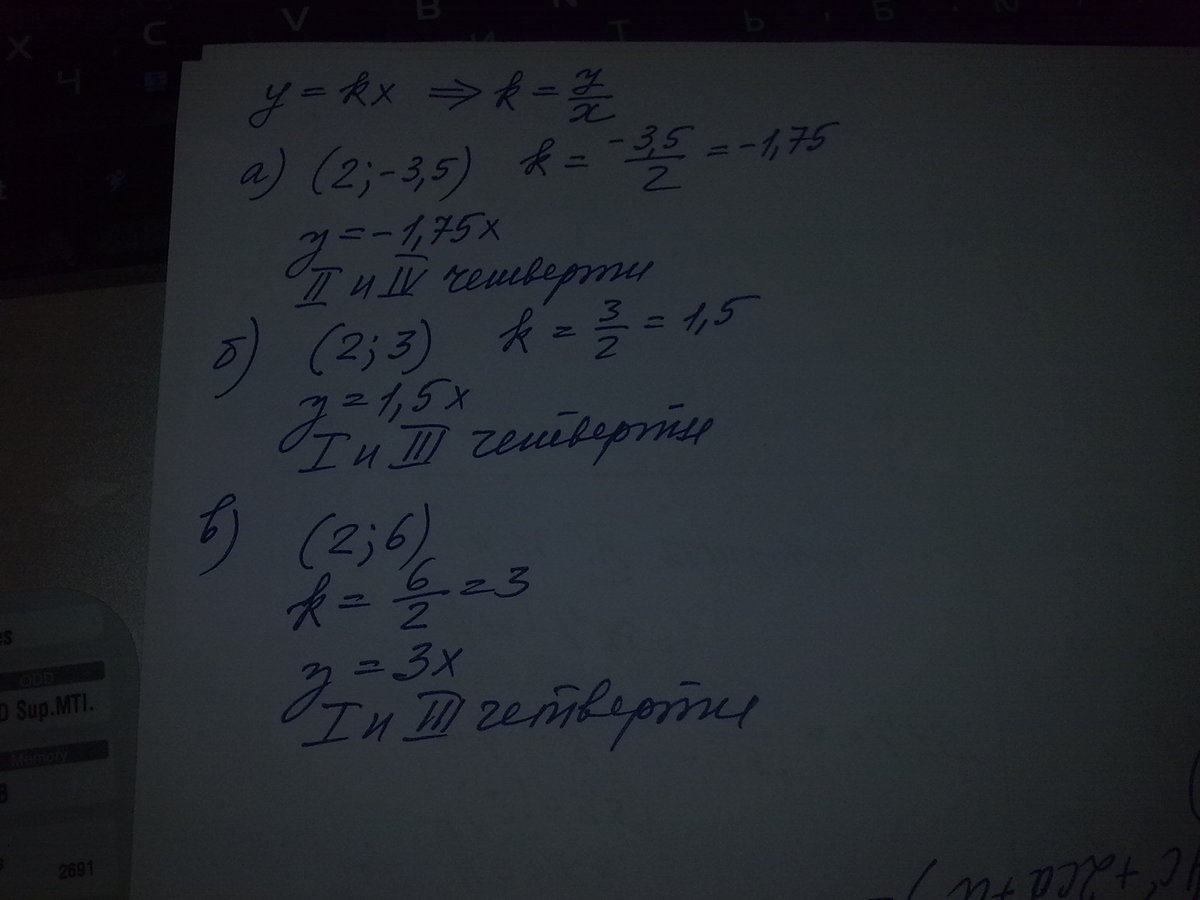 X C V B
Ч И Т Ь Б
y = kx ⇒ k = y/x
а) (2; -3,5) k = -3,5/2 = -1,75
y = -1,75x
II и IV четверти
б) (2; 3) k = 3/2 = 1,5
y = 1,5x
I и III четверти
в) (2; 6)
k = 6/2 = 3
y = 3x
I и III четверти
ODD
Sup.MTI.
Memory
2691